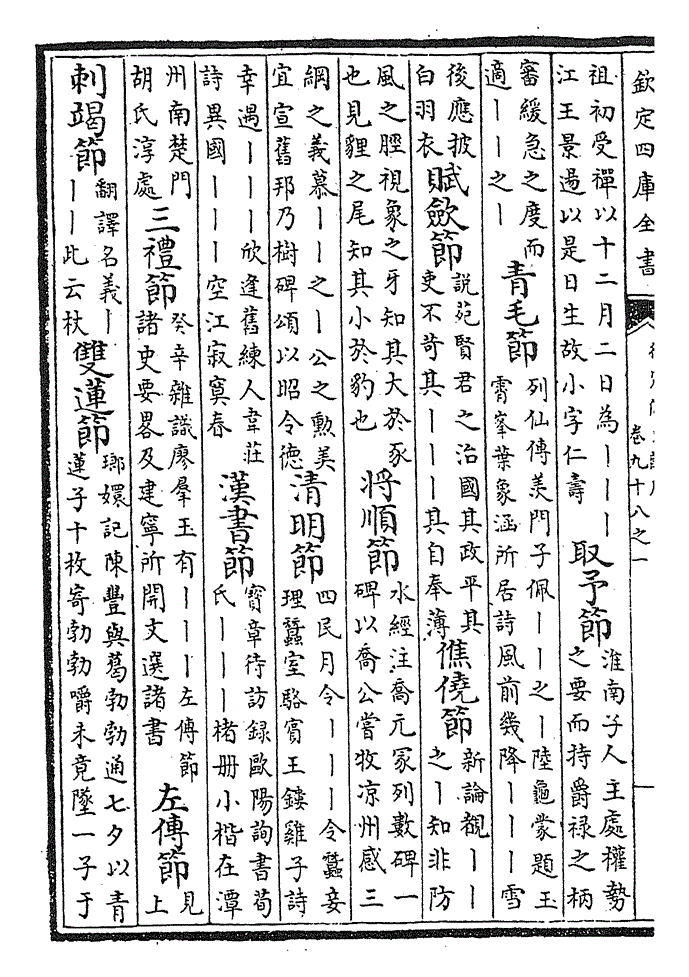 欽定四庫全書
卷九十八之一
祖初受禪以十二月二日為丨丨丨
江王景過以是日生故小字仁壽
取予節
淮南子人主處權勢
之要而持爵禄之柄
審緩急之度而
適丨丨之丨
青毛節
列仙傳羨門子佩丨丨之丨陸龜蒙題玉
霄峯葉象涵所居詩風前幾降丨丨丨雪
後應披
白羽衣
賦斂節
説苑賢君之治國其政平其
吏不苛其丨丨丨其自奉薄
僬僥節
新論觀丨丨
之丨知非防
風之脛視象之牙知其大於豕
也見貍之尾知其小於豹也
將順節
水經注喬元冢列數碑一
碑以喬公嘗牧凉州感三
綱之義慕丨丨之丨公之勲美
宜宣舊邦乃樹碑頌以昭令德
清明節
四民月令丨丨丨令蠶妾
理蠶室駱賓王鏤雞子詩
幸遇丨丨丨欣逢舊練人韋莊
詩異國丨丨丨空江寂寞春
漢書節
寳章待訪録歐陽詢書荀
氏丨丨丨楮册小楷在潭
州南楚門
胡氏淳處
三禮節
癸辛雜識廖羣玉有丨丨丨左傳節
諸史要畧及建寧所開文選諸書
左傳節
見
上
刺竭節
翻譯名義丨
丨丨此云杖
雙蓮節
瑯嬛記陳豐與葛勃勃通七夕以青
蓮子十枚寄勃勃嚼未竟墜一子于